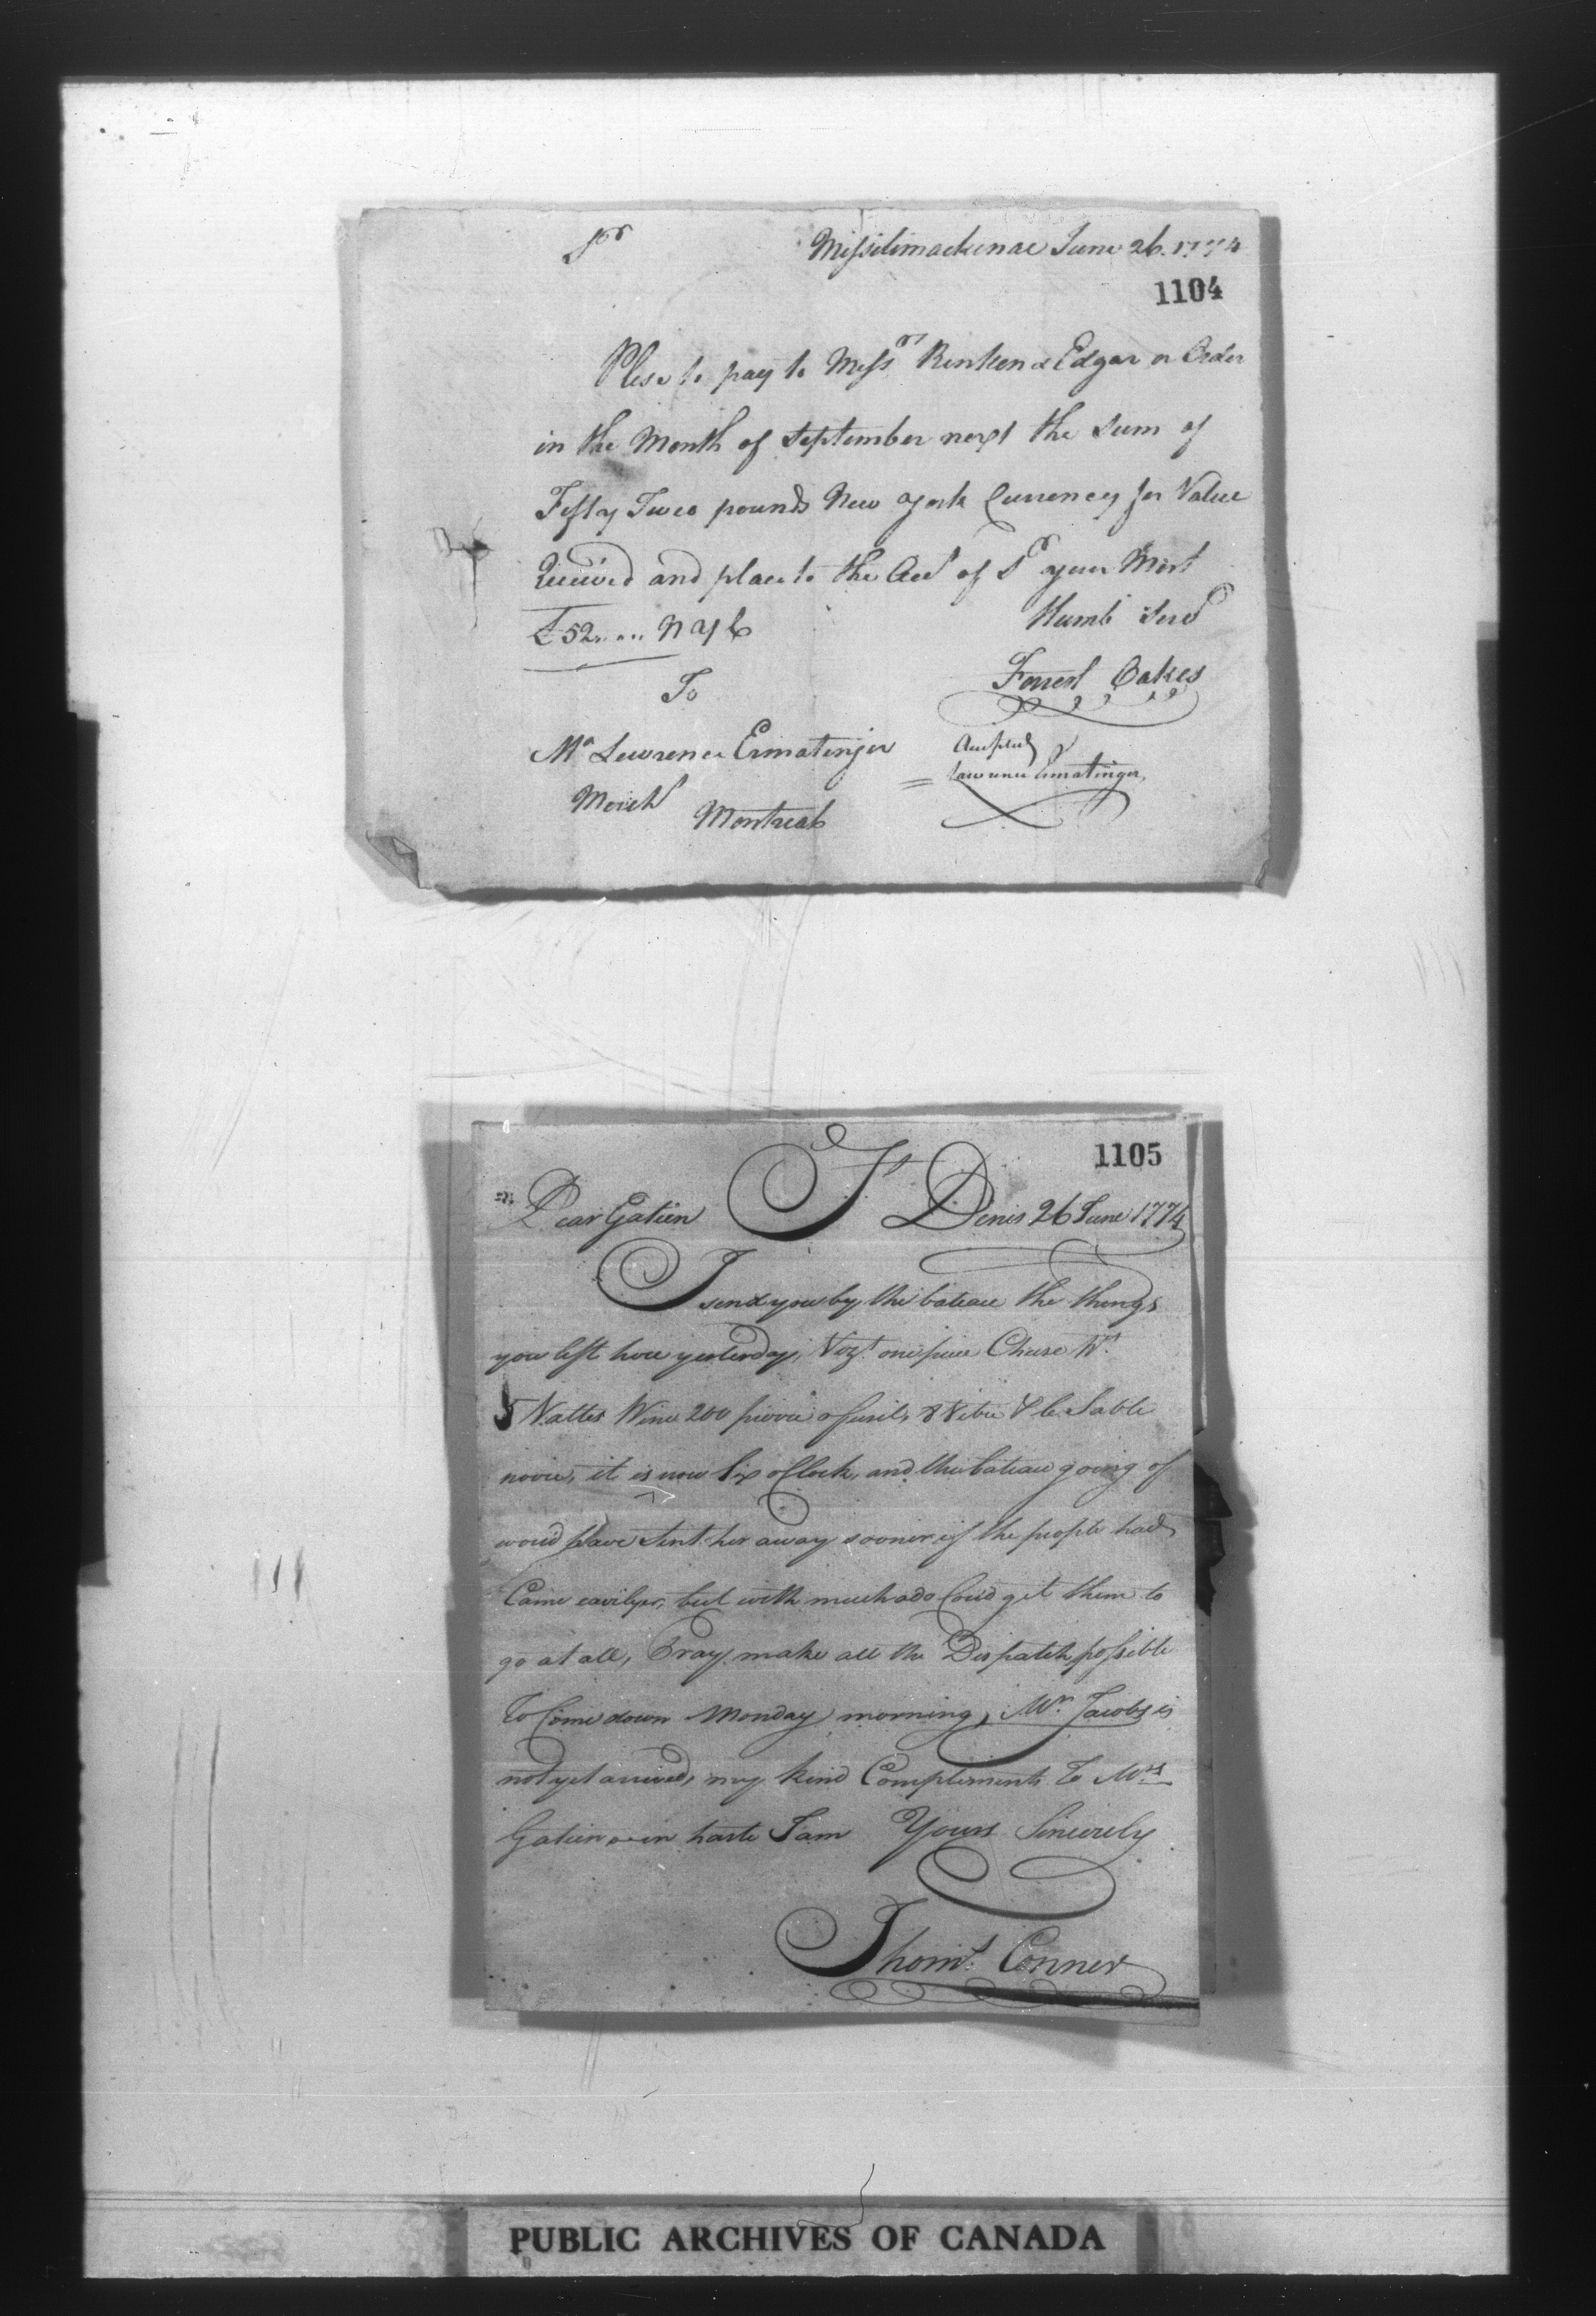 Sr Missilimackinac June 26. 1774
1104
Plese to pay to Messrs Rinken & Edgar or Order
in the Month of September next the Sum of
Fifty Two pounds New York Currency for Value
Received and place to the Acct of Sr your Most
Humb Servt
£52.... N Y C
Forrest Oakes
To
Mr Lawrence Ermatinger
Accepted
Lawrence Ermatinger
Merch
Montreal
1105
Dear Gatien St Denis 26 June 1774
I send you by the bateau the things
you left here yesterday, Vizt. one piece Cheese Wt.
5 Nattes Wine 200 pierre a fusil, & le Sable
it is now Six oClock, and the bateau going of
would have Sent her away sooner if the people had
Came earilyer, but with much ado Coud get them to
go at all, Pray make all the Dispatch possible
To Come down Monday morning, Mr. Jacobs is
not yet arrived, my kind Compliments To Mrs
Gatien in haste I am Yours Sincerely
Thoms. Conner
PUBLIC ARCHIVES OF CANADA